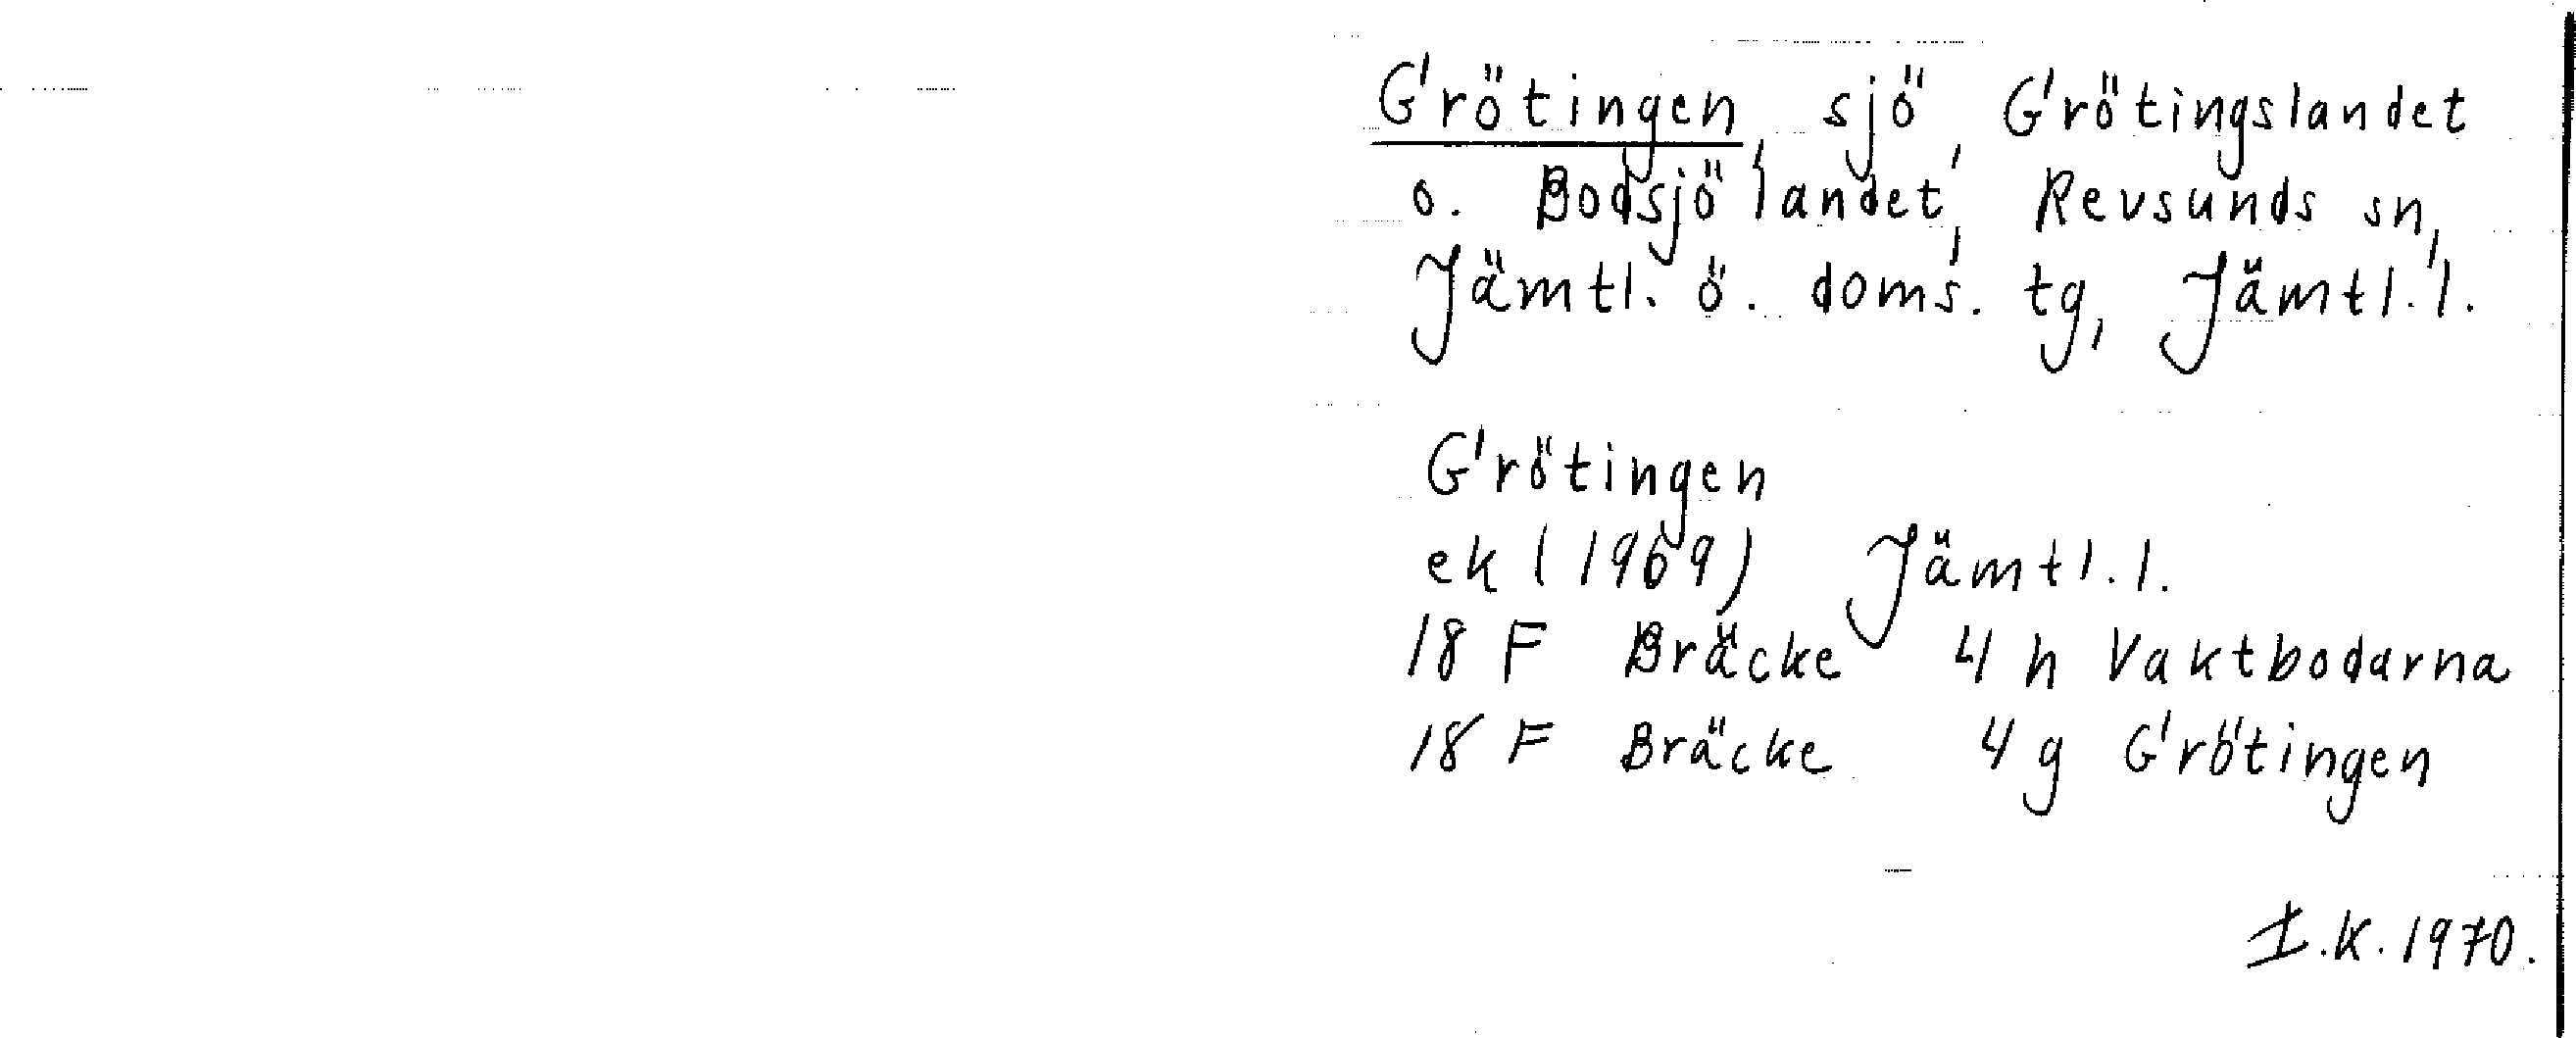 Grötingen, sjö, Grötingslandet
o. Bodsjölandet, Revsunds sn,
Jämtl. ö. doms. tg, Jämtl. l.
Grötingen
ek (1969) Jämtl. l.
18 F Bräcke 4 h Vaktbodarna
18 F Bräcke 4 g Grötingen
I.K. 1970.